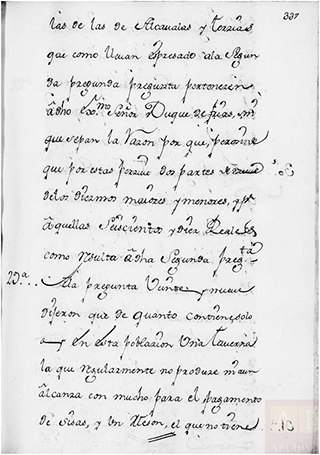 337
las de las de Alcavalas y terzias
que como llevan espresado ala Segun
da pregunda pregunta pertenezen
âdho Ex.mo Señor Duque de frias, sin
que sepan la Razon por que, perzive
que por estas perzive Dos partes de nueve
delos Diezmos maiores y menores, y p.r
âquellas Seiscientos y diez Reales
como resulta âdha Segunda preg.ta
29.a Ala pregunta Veinte y nueve
dijeron que de quanto contiene, solo
ay en esta poblazion Una taverna
la que regularmente no produze ni aun
âlcanza con mucho para el pagamento
de sisas, y Un Meson, el que no tiene